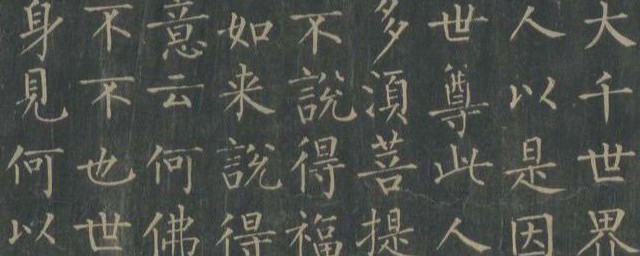 大千世界
人以是因
世尊此人
多須菩提
不說得福
如来說得
意云何佛
不不也世
身見何以